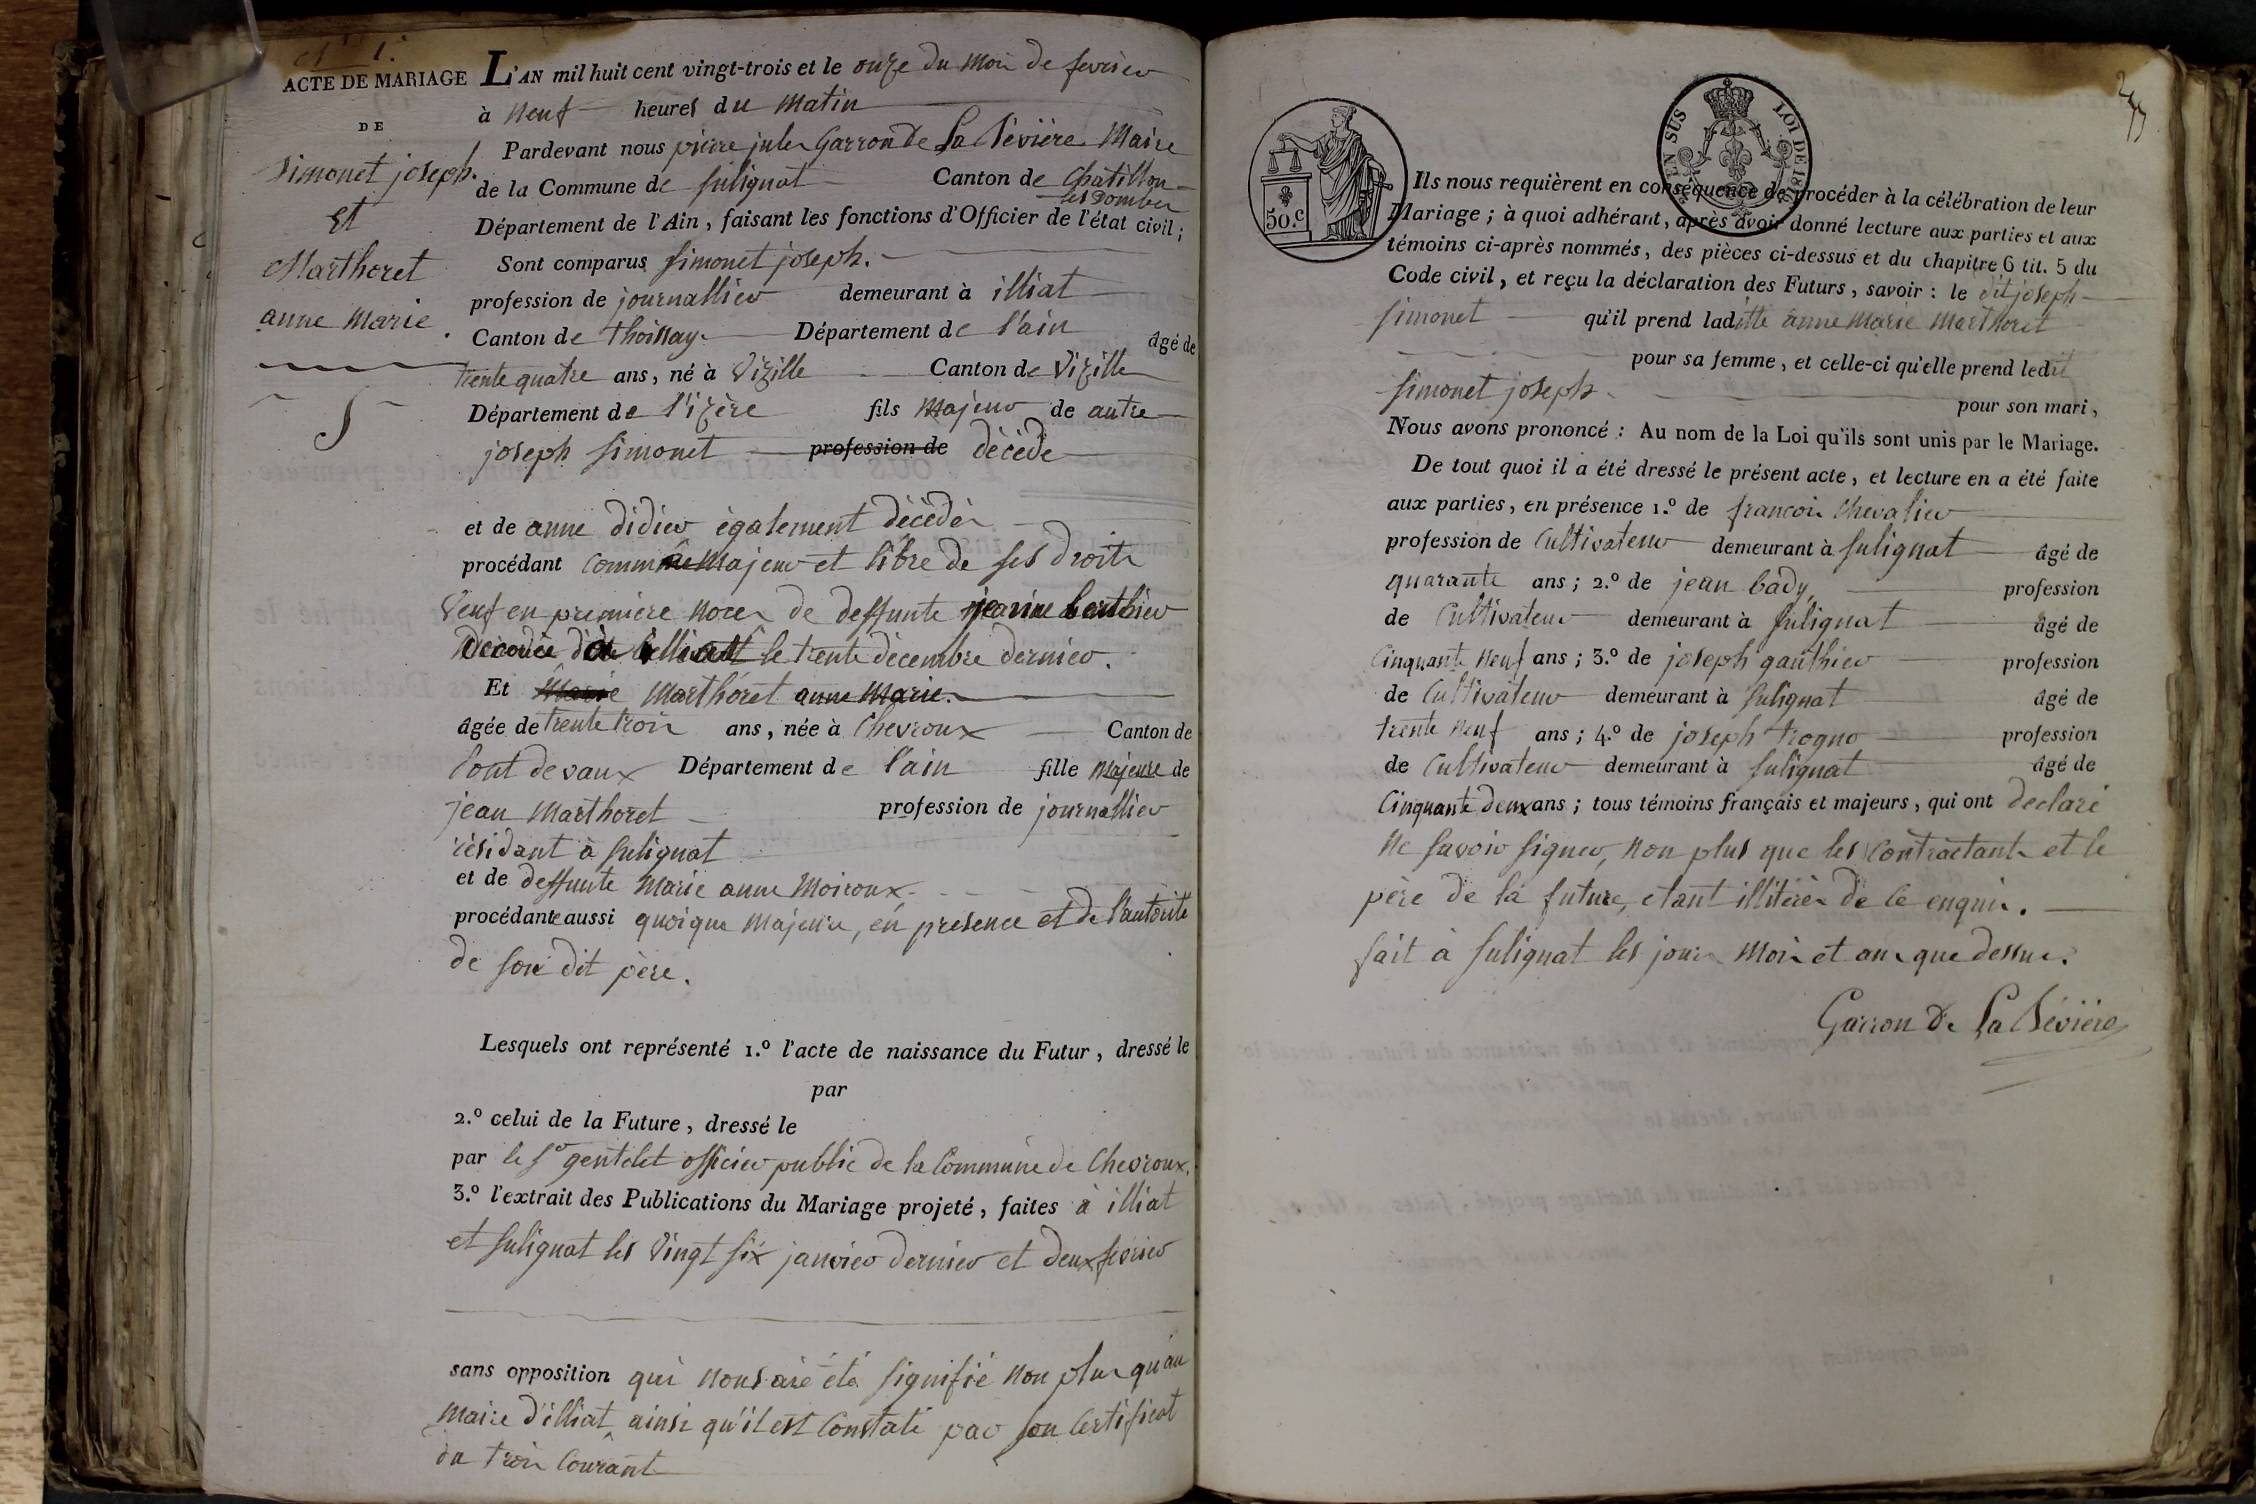 N° 1.
ACTE DE MARIAGE
DE
Simonet joseph.
Et
Marthoret
anne Marie.
L'AN mil huit cent vingt-trois et le onze du mois de fevrier
à neuf heures du matin
Pardevant nous pierre jules Garron de La Bévière Maire
de la Commune de Sulignat Canton de Chatillon
les Dombes
Département de l'Ain, faisant les fonctions d'Officier de l'état civil;
Sont comparus Simonet joseph.
profession de journallier demeurant à illiat
Canton de thoissay Département de l'ain âgé de
trente quatre ans, né à Vizille Canton de Vizille
Département de l'izère fils majeur de autre
joseph Simonet profession de décédé
et de anne didier également décédée
procédant comme majeur et libre de ses droits
Veuf en premiere noces de deffunte jeanne berthier
décédée à illiat le trente décembre dernier.
Et Marthoret anne Marie.
âgée de trente trois ans, née à Chevroux Canton de
Pont devaux Département de l'ain fille majeure de
jean Marthoret profession de journallier
résidant à Sulignat
et de deffunte Marie anne Moiroux
procédante aussi quoique majeure, en presence et de l'autorité
de son dit père.
Lesquels ont représenté 1.º l'acte de naissance du Futur, dressé le
par
2.º celui de la Future, dressé le
par le Sr gentelet officier public de la Commune de Chevroux.
3.º l'extrait des Publications du Mariage projeté, faites à illiat
et Sulignat les vingt six janvier dernier et deux fevrier
sans opposition qui nous aie été signifié non plus qu'au
maire d'illiat, ainsi qu'il est constaté par son certificat
du trois courant
50.c
EN SUS
LOI DE 1816
Ils nous requièrent en conséquence de procéder à la célébration de leur
Mariage; à quoi adhérant, après avoir donné lecture aux parties et aux
témoins ci-après nommés, des pièces ci-dessus et du chapitre 6 tit. 5 du
Code civil, et reçu la déclaration des Futurs, savoir: le dit joseph
Simonet qu'il prend laditte anne Marie Marthoret
pour sa femme, et celle-ci qu'elle prend ledit
Simonet joseph pour son mari,
Nous avons prononcé: Au nom de la Loi qu'ils sont unis par le Mariage.
De tout quoi il a été dressé le présent acte, et lecture en a été faite
aux parties, en présence 1.º de francois Chevalier
profession de Cultivateur demeurant à Sulignat âgé de
quarante ans; 2.º de jean bady, profession
de Cultivateur demeurant à Sulignat âgé de
Cinquante neuf ans; 3.º de joseph gauthier profession
de Cultivateur demeurant à Sulignat âgé de
trente neuf ans; 4.º de joseph trogno profession
de Cultivateur demeurant à Sulignat âgé de
Cinquante deux ans; tous témoins français et majeurs, qui ont declaré
ne savoir signer, non plus que les contractants et le
père de la future, etant illiterés de ce enquis.
fait à Sulignat les jour mois et an que dessus.
Garron De La Bévière